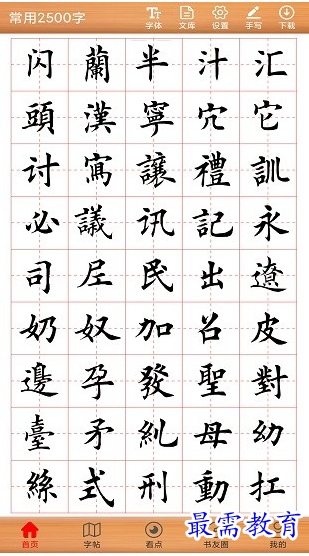 常用2500字
字体 文库 设置 手写 下载
闪 蘭 半 汁 汇
頭 漢 寧 穴 它
讨 寫 讓 禮 訓
必 議 讯 記 永
司 尼 民 出 遼
奶 奴 加 召 皮
邊 孕 發 聖 對
臺 矛 糺 母 幼
絲 式 刑 動 扛
最需教育
首页 字帖 看点 书友圈 我的